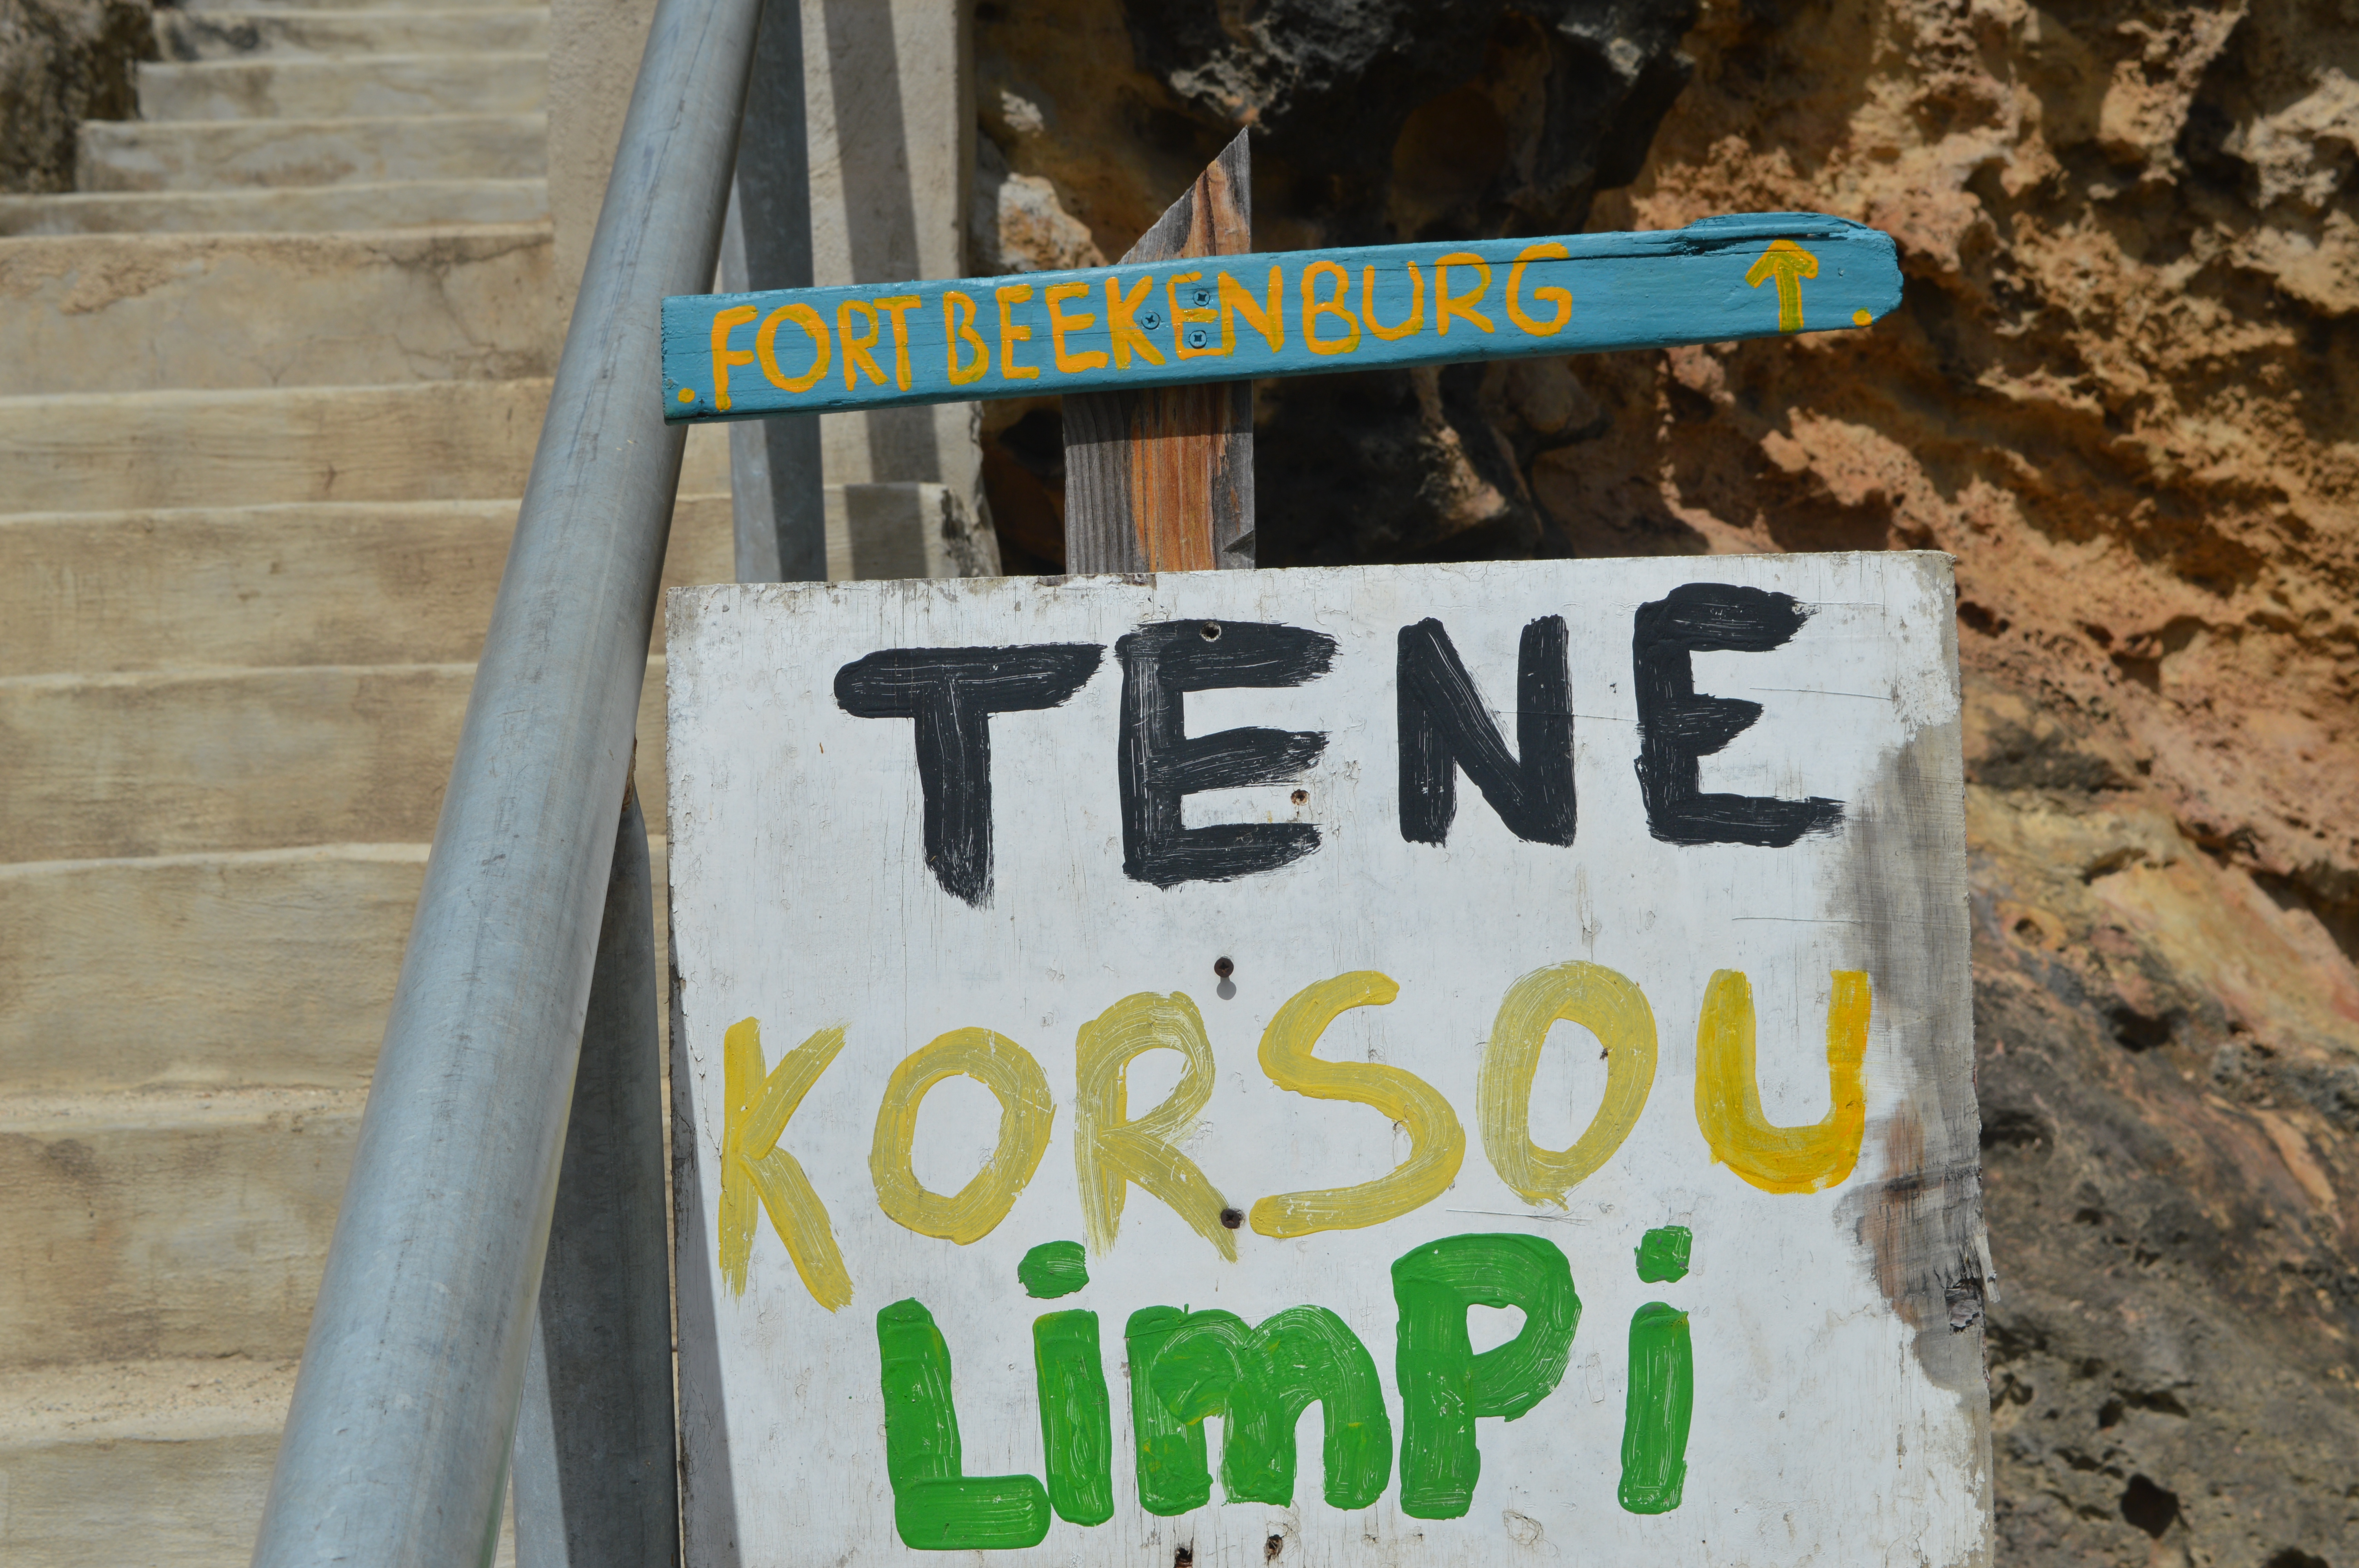 FORT BEEKENBURG ↑
TENE
KORSOU
LimPi